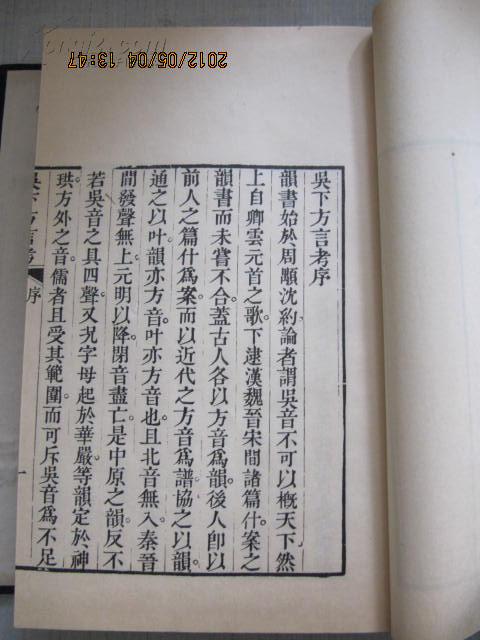 吳下方言考序
韻書始於周顒沈約論者謂吳音不可以槪天下然
上自卿雲元首之歌下逮漢魏晉宋間諸篇什案之
韻書而未嘗不合蓋古人各以方音爲韻後人卽以
前人之篇什爲案而以近代之方音爲譜協之以韻
通之以叶韻亦方音叶亦方音也且北音無入秦晉
間發聲無上元明以降閉音盡亡是中原之韻反不
若吳音之具四聲又況字母起於華嚴等韻定於神
珙方外之音儒者且受其範圍而可斥吳音爲不足
吳下方言考
序
一
2012/05/04 13:47